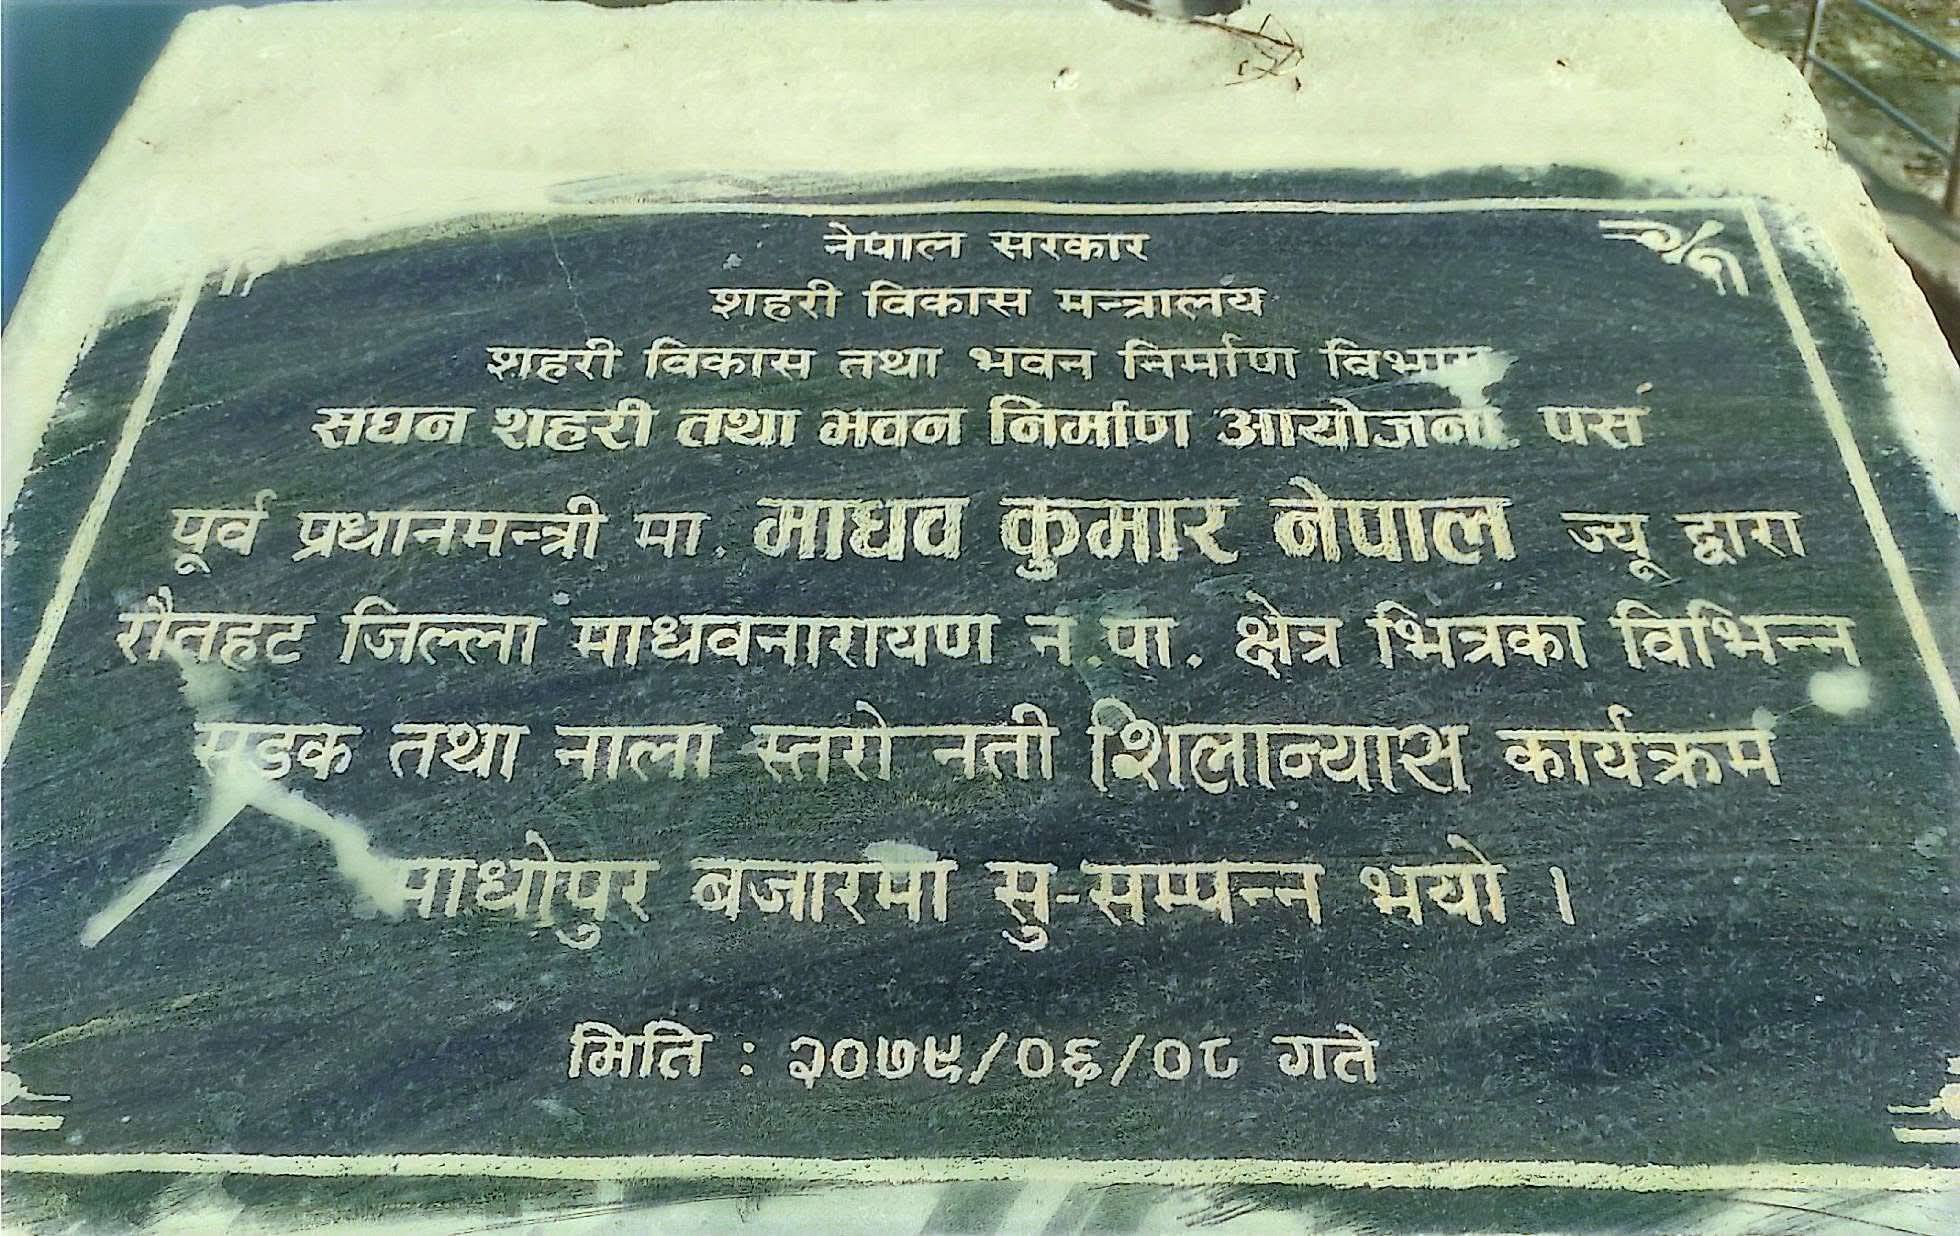 नेपाल सरकार
शहरी विकास मन्त्रालय
शहरी विकास तथा भवन निर्माण विभाग
सघन शहरी तथा भवन निर्माण आयोजना पर्सा
पूर्व प्रधानमन्त्री मा. माधव कुमार नेपाल ज्यू द्वारा
रौतहट जिल्ला माधवनारायण न.पा. क्षेत्र भित्रका विभिन्न
सडक तथा नाला स्तरो नती शिलान्यास कार्यक्रम
माधोपुर बजारमा सु-सम्पन्न भयो ।
मिति : २०७९/०६/०८ गते